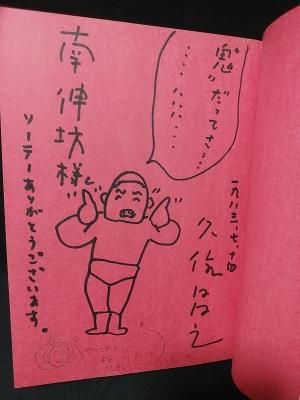 “鬼”だってさ…
‥‥ハハハ‥‥
一九八三、七、十日
久住昌之
南伸坊様
ソーテーありがとうございます。